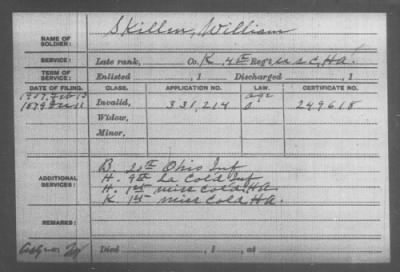 NAME OF SOLDIER: Skillen, William
SERVICE: Late rank, Co. K, 4th Reg't U S C, H A.
TERM OF SERVICE: Enlisted , 1 Discharged , 1
DATE OF FILING. CLASS. APPLICATION NO. LAW. CERTIFICATE NO.
1907, Feb 13 age
1879 Invalid, 331,214 249618
Widow,
Minor,
ADDITIONAL SERVICES:
B. 20th Ohio Inf
H. 9th La Cold Inf
H. 1st Miss Cold, H.A.
K. 1st Miss Cold, H.A.
REMARKS:
Died , 1 , at